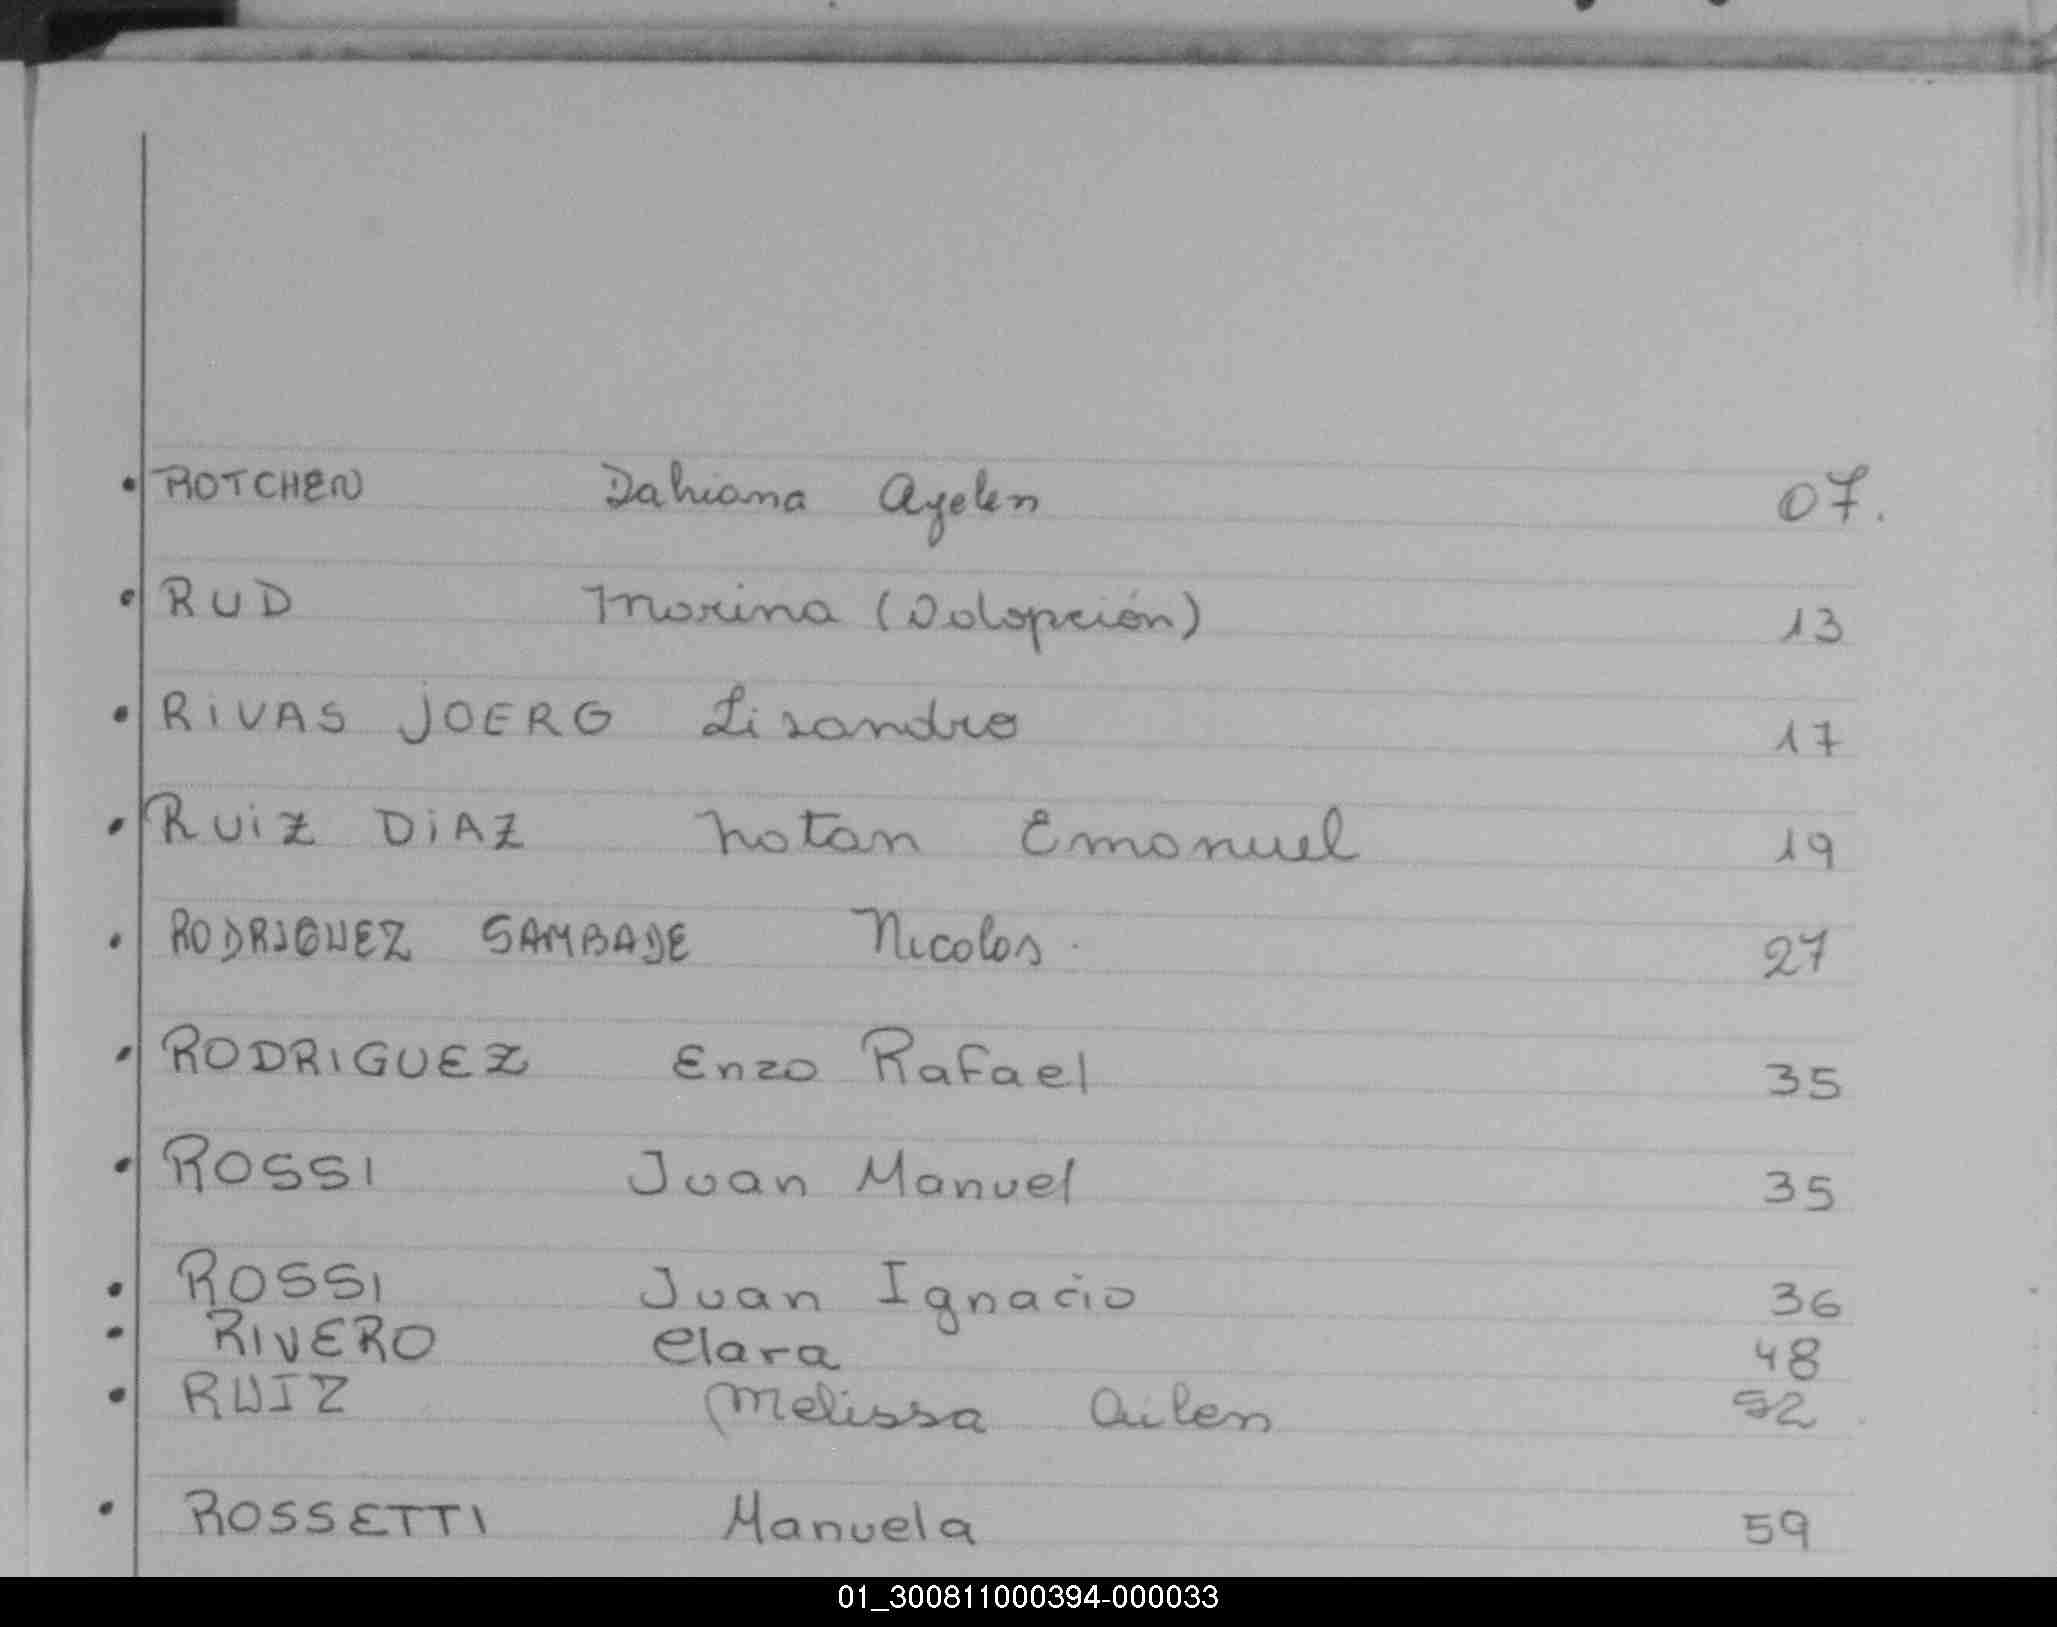 ROTCHEN Dahiana Ayelen 07.
RUD Marina (Adopción) 13
RIVAS JOERG Lisandro 17
RUIZ DIAZ Natan Emanuel 19
RODRIGUEZ SAMBADE Nicolas 27
RODRIGUEZ Enzo Rafael 35
ROSSI Juan Manuel 35
ROSSI Juan Ignacio 36
RIVERO Clara 48
RUIZ Melissa Ailen 52
ROSSETTI Manuela 59
01_300811000394-000033